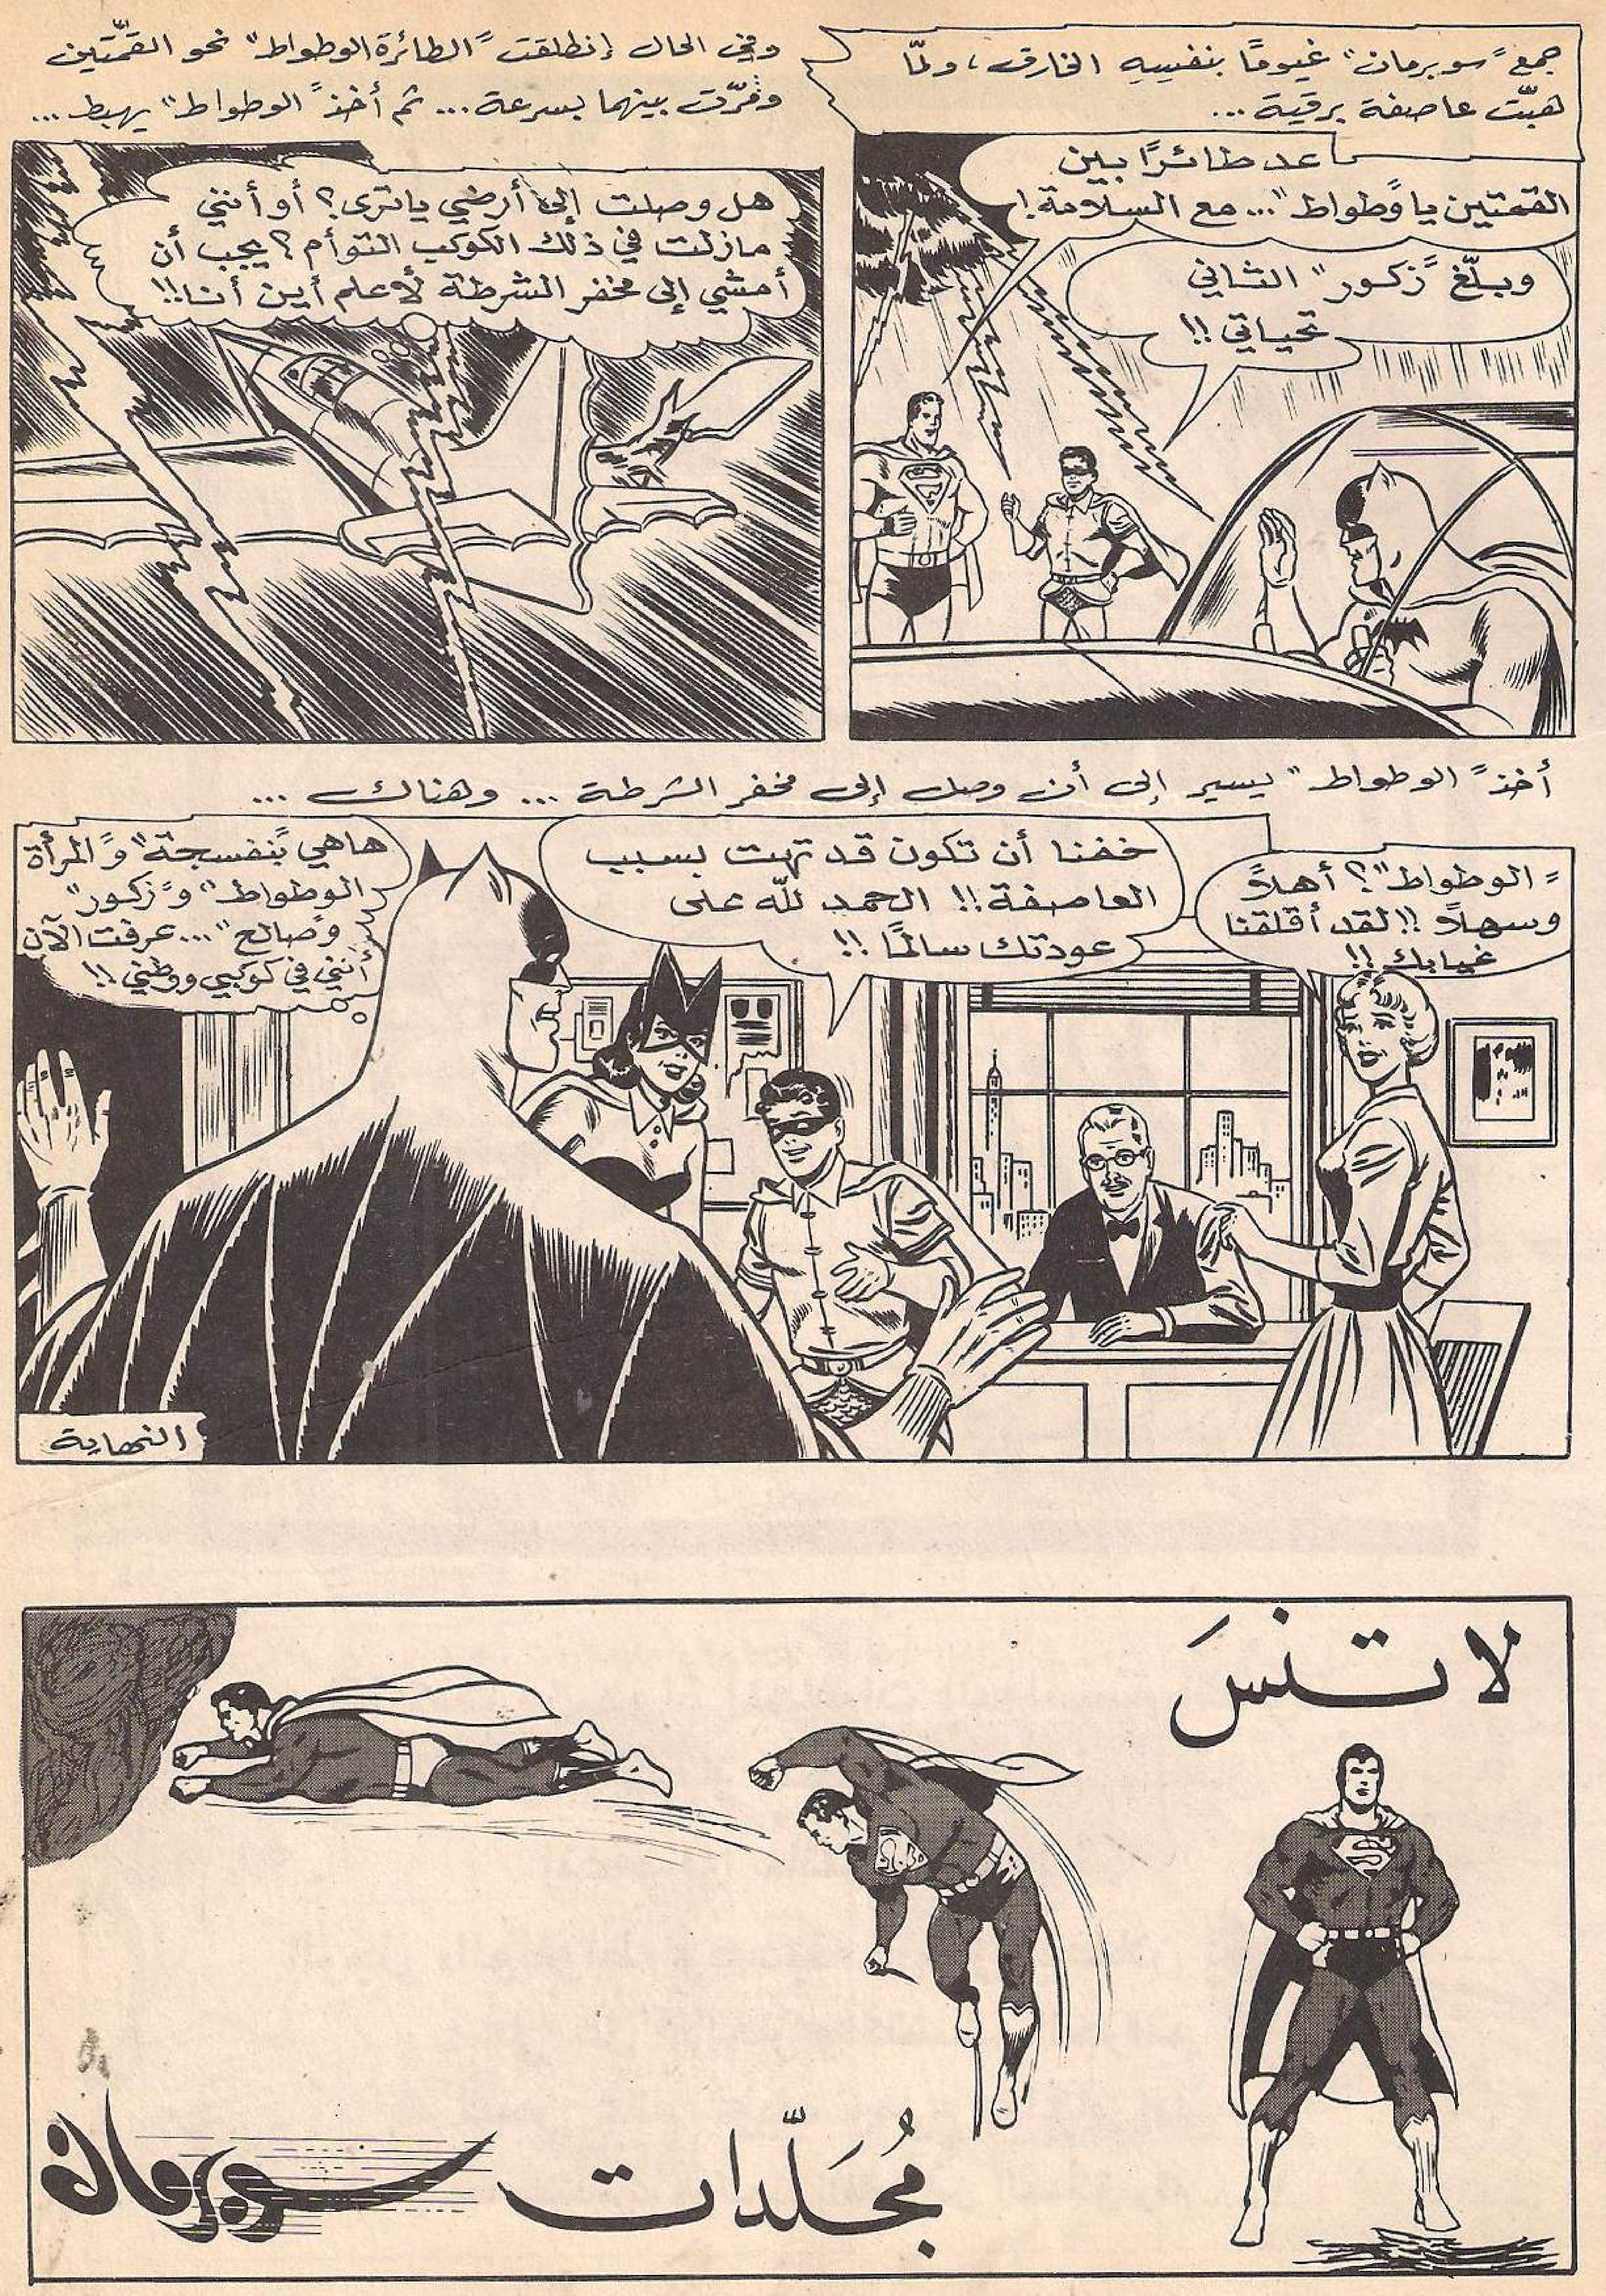 جمع "سوبرمان" غيومًا بنفسِهِ الخارق، ولمّا
هبّت عاصفة برقية...
عد طائرًا بين
القمتين يا "وطواط"... مع السلامة!
وبلّغ "زكور" الثاني
تحياتي!!
وفي الحال إنطلقت "الطائرة الوطواط" نحو القمّتين
ومرّت بينهما بسرعة... ثم أخذ "الوطواط" يهبط...
هل وصلت إلى أرضي يا ترى؟ أو أنني
مازلت في ذلك الكوكب التوأم؟ يجب أن
أمشي إلى مخفر الشرطة لأعلم أين أنا!!
أخذ "الوطواط" يسير إلى أن وصل إلى مخفر الشرطة... وهناك...
"الوطواط"؟ أهلاً
وسهلاً!! لقد أقلقنا
غيابك!!
خفنا أن تكون قد تهت بسبب
العاصفة!! الحمد لله على
عودتك سالمًا!!
هاهي "بنفسجة" و"المرأة
الوطواط" و"زكور"
و"صالح"... عرفت الآن
أنني في كوكبي ووطني!!
النهاية
لا تنسَ
مُجَلّدات سوبرمان